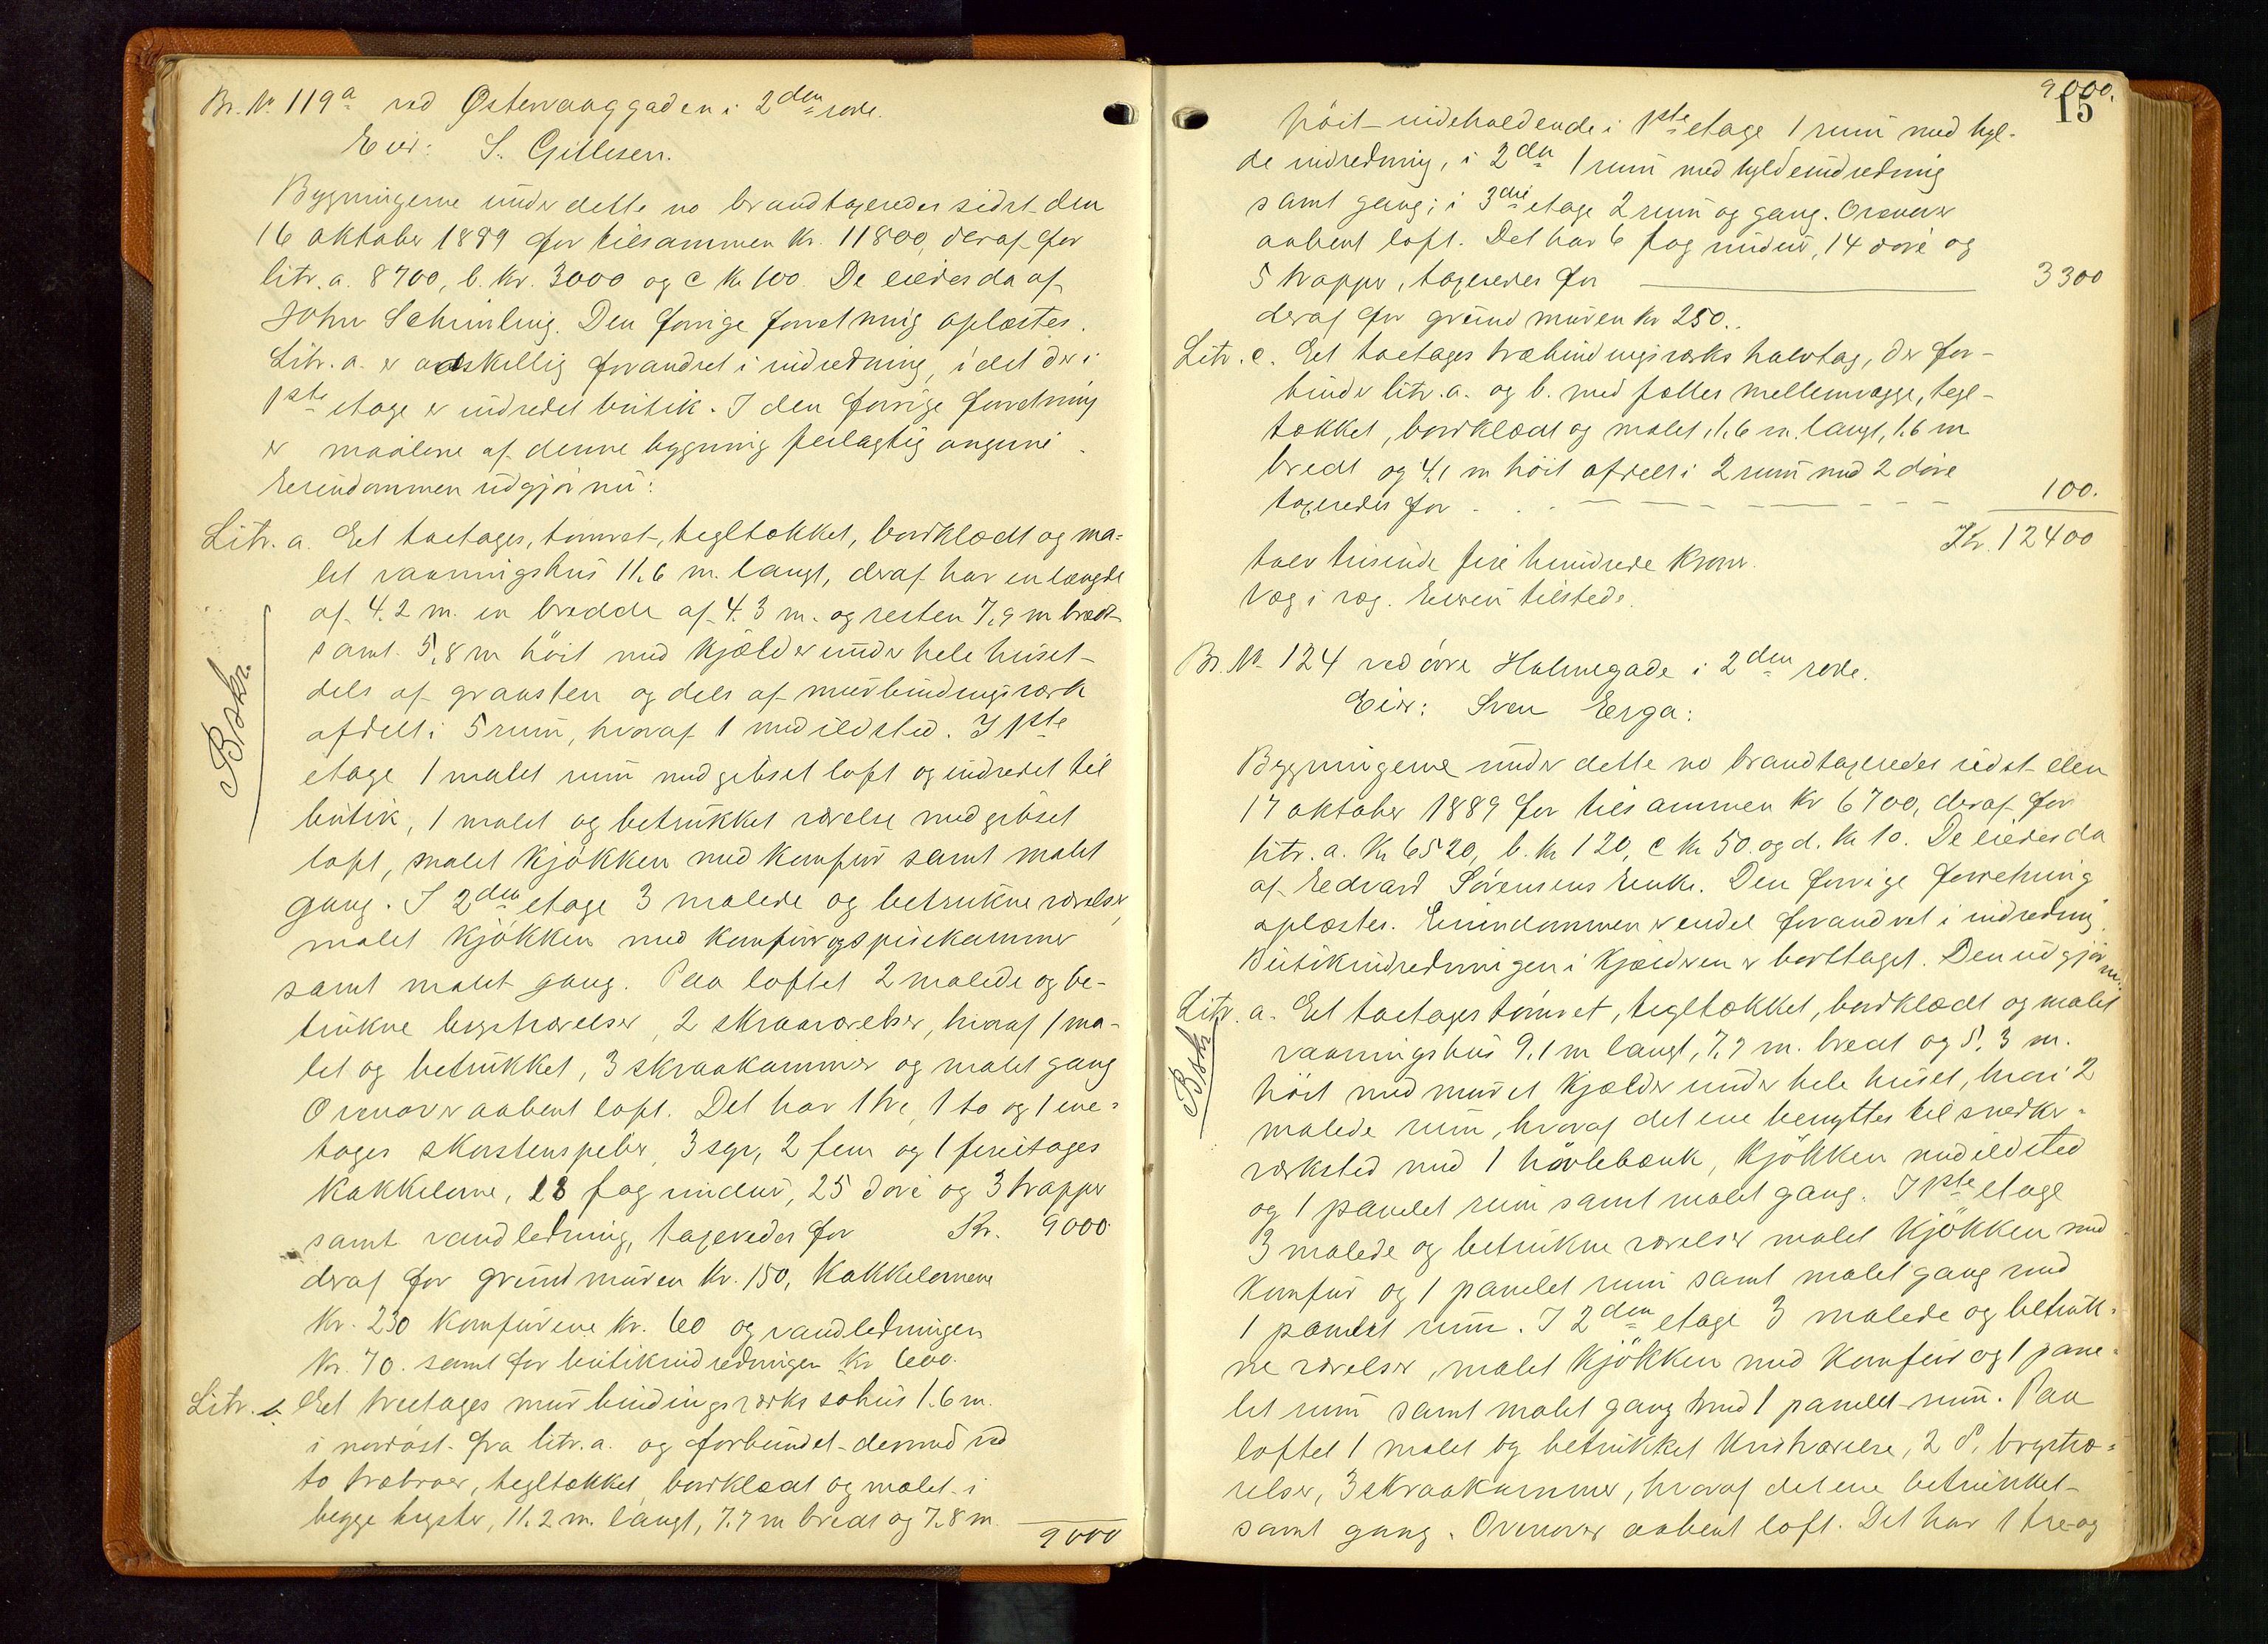 Br. No 119a ved Østervaaggaden i 2den rode.
Eier: S. Gitlesen.
Bygningerne under dette no brandtaxeredes sidst den
16 oktober 1889 for tilsammen Kr. 11800, deraf for
litr. a. 8700, b. Kr. 3000 og c Kr 100. De eiedes da af
John Schimling. Den forrige forretning oplæstes.
Litr. a. er adskillig forandret i indredning, idet der i
1ste etage er indredet butik. I den forrige forretning
er maalene af denne bygning feilagtig angivne.
Eiendommen udgjør nu:
Litr. a. Et toetages, tømret, tegltækket, bordklædt og ma=
let vaaningshus 11.6 m. langt, deraf har en længde
af 4.2 m. en bredde af 4.3 m. og resten 7.9 m bredt
samt 5.8 m høit med kjælder under hele huset
dels af graasten og dels af murbindingsværk
afdelt i 5 rum, hvoraf 1 med ildsted. I 1ste
etage 1 malet rum med gibset loft og indredet til
butik, 1 malet og betrukket værelse med gibset
loft, malet kjøkken med komfur samt malet
gang. I 2den etage 3 malede og betrukne værelser,
malet kjøkken med komfur og spisekammer
samt malet gang. Paa loftet 2 malede og be-
trukne brystværelser, 2 skraaværelser, hvoraf 1 ma-
let og betrukket, 3 skraakammer og malet gang
Ovenover aabent loft. Det har 1 tre, 1 to og 1 ene=
tages skorstenspiber, 3 sex, 2 fem og 1 fireetages
kakkelovne, 28 fag vinduer, 25 døre og 3 trapper
samt vandledning, taxeredes for Kr. 9000.
deraf for grundmuren Kr. 150, kakkelovnene
Kr. 230 komfurene Kr. 60 og vandledningen
Kr. 70. samt for butikindredningen Kr 600.
Litr. b. Et treetages murbindingsværks søhus 1.6 m.
i nordøst fra litr. a. og forbundet dermed ved
to træbroer, tegltækket, bordklædt og malet i
begge bryster, 11.2 m. langt, 7.7 m bredt og 7.8 m
9000
Bskr.
9000.
15
høit indeholdende i 1ste etage 1 rum med hyl-
de indredning, i 2den 1 rum med hyldeindredning
samt gang; i 3die etage 2 rum og gang. Ovenover
aabent loft. Det har 6 fag vinduer, 14 døre og
5 trapper, taxeredes for 3300
deraf for grundmuren Kr 250.
Litr. c. Et toetages træbindingsværks halvtag, der for-
binder litr. a. og b. med fælles mellemvægge, tegl-
tækket, bordklædt og malet, 1.6 m. langt, 1.6 m
bredt og 4.1 m høit afdelt i 2 rum med 2 døre
taxeredes for 100.
Kr. 12400
tolv tusinde fire hundrede kroner.
Væg i væg. Eieren tilstede.
Br. No 124 ved øvre Holmegade i 2den rode.
Eier: Sven Erga:
Bygningerne under dette no brandtaxeredes sidst den
17 oktober 1889 for tilsammen Kr 6700, deraf for
litr. a. Kr 6520, b. Kr 120, c Kr 50. og d. Kr 10. De eiedes da
af Edvard Sørensens Enke. Den forrige forretning
oplæstes. Eiendommen er endel forandret i indredning.
Butikindredningen i kjælderen er borttaget. Den udgjør nu:
Litr. a. Et toetages tømret, tegltækket, bordklædt og malet
vaaningshus 9.1 m langt, 7.7 m. bredt og 5.3 m.
høit med muret kjælder under hele huset, hvori 2
malede rum, hvoraf det ene benyttes til snedker-
værksted med 1 høvlebænk, kjøkken med ildsted
og 1 panelet rum samt malet gang. I 1ste etage
3 malede og betrukne værelser malet kjøkken med
komfur og 1 panelet rum samt malet gang med
1 panelet rum. I 2den etage 3 malede og betruk=
ne værelser, malet kjøkken med komfur og 1 pane=
let rum samt malet gang med 1 panelet rum. Paa
loftet 1 malet og betrukket kvistværelse, 2 d. brystvæ=
relser, 3 skraakammer, hvoraf det ene betrukket
samt gang. Ovenover aabent loft. Det har 1 tre og
Bskr